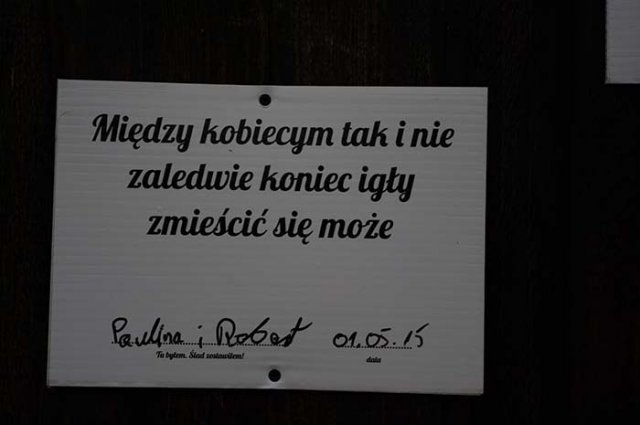 Między kobiecym tak i nie
zaledwie koniec igły
zmieścić się może
Paulina i Robert 01.05.15
Tu byłem. Ślad zostawiłem! data